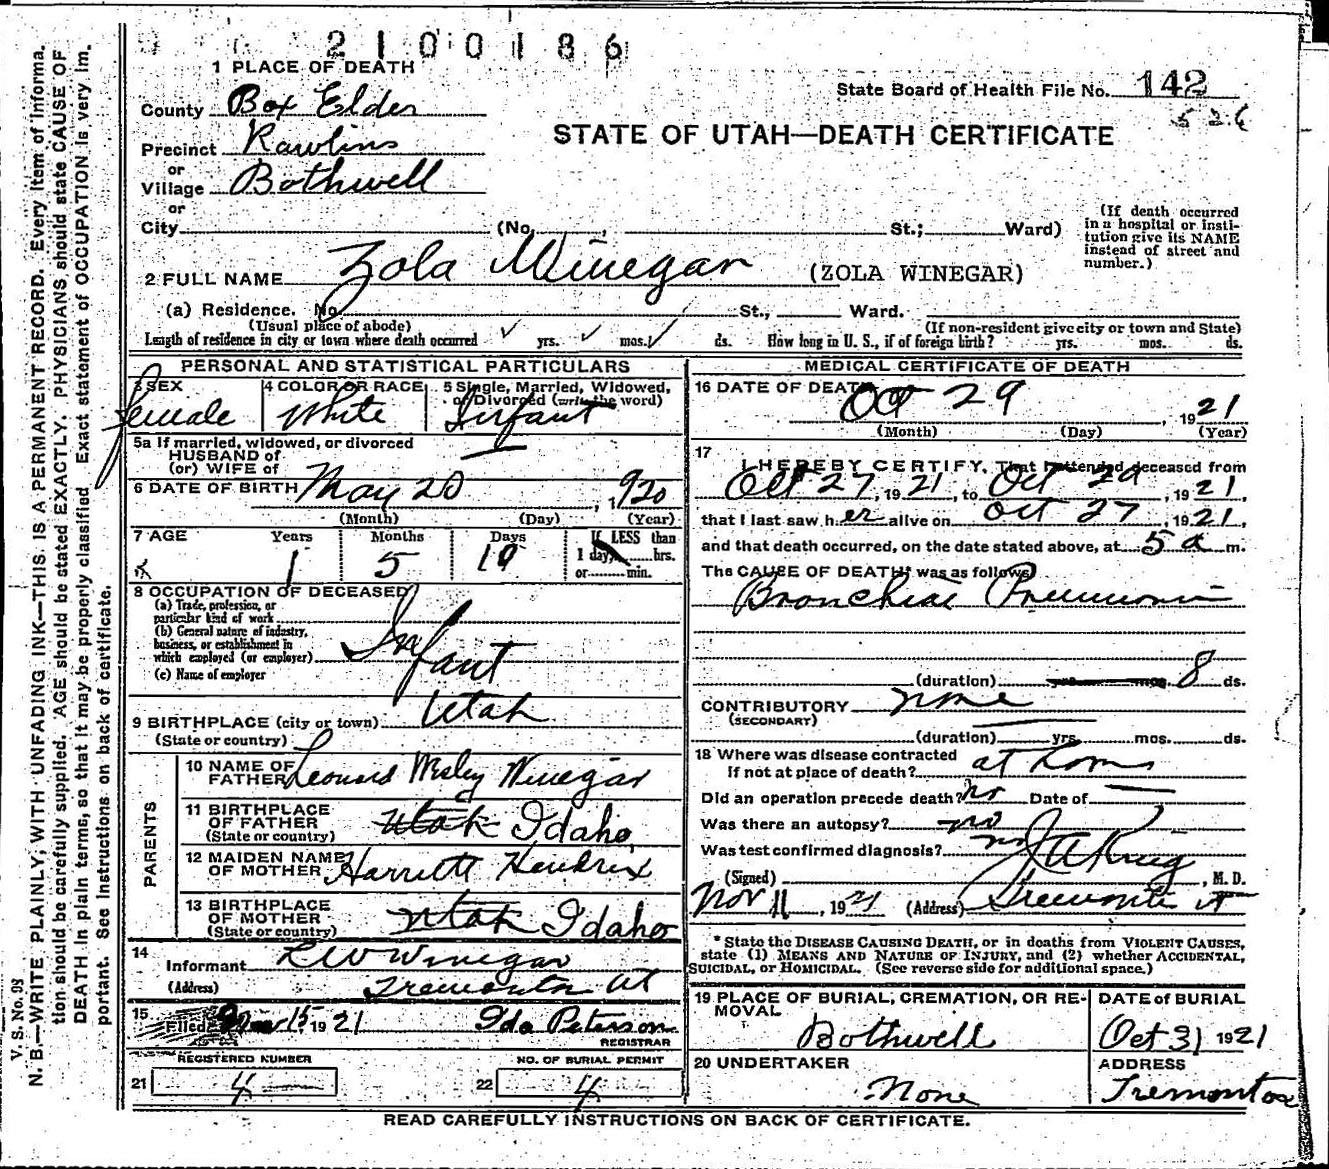 2100186
1 PLACE OF DEATH
State Board of Health File No. 142
County Box Elder
526
STATE OF UTAH—DEATH CERTIFICATE
Precinct Rawlins
or
Village Bothwell
or
City (No. , St.; Ward)
(If death occurred in a hospital or institution give its NAME instead of street and number.)
2 FULL NAME Zola Winegar (ZOLA WINEGAR)
(a) Residence. No. St., Ward.
(Usual place of abode) (If non-resident give city or town and State)
Length of residence in city or town where death occurred yrs. mos. ds. How long in U. S., if of foreign birth? yrs. mos. ds.
PERSONAL AND STATISTICAL PARTICULARS
3 SEX 4 COLOR OR RACE 5 Single, Married, Widowed, or Divorced (write the word)
female White Infant
5a If married, widowed, or divorced
HUSBAND of
(or) WIFE of
6 DATE OF BIRTH May 20, 1920
(Month) (Day) (Year)
7 AGE Years Months Days If LESS than
1 day, hrs.
or min.
1 5 10
8 OCCUPATION OF DECEASED
(a) Trade, profession, or
particular kind of work
(b) General nature of industry,
business, or establishment in
which employed (or employer)
(c) Name of employer
Infant
9 BIRTHPLACE (city or town) Utah
(State or country)
PARENTS
10 NAME OF FATHER Leonard Wesley Winegar
11 BIRTHPLACE OF FATHER Utah Idaho
(State or country)
12 MAIDEN NAME OF MOTHER Harriett Hendrix
13 BIRTHPLACE OF MOTHER Utah Idaho
(State or country)
14
Informant L W Winegar
(Address) Tremonton Ut
15
Filed Nov 15 1921 Ida Peterson
REGISTRAR
REGISTERED NUMBER NO. OF BURIAL PERMIT
21 4 22 4
MEDICAL CERTIFICATE OF DEATH
16 DATE OF DEATH
Oct 29, 1921
(Month) (Day) (Year)
17
I HEREBY CERTIFY, That I attended deceased from
Oct 27, 1921, to Oct 29, 1921,
that I last saw her alive on Oct 27, 1921,
and that death occurred, on the date stated above, at 5 a m.
The CAUSE OF DEATH* was as follows:
Bronchial Pneumonia
(duration) yrs. mos. 8 ds.
CONTRIBUTORY none
(SECONDARY)
(duration) yrs. mos. ds.
18 Where was disease contracted
if not at place of death? at home
Did an operation precede death? no Date of
Was there an autopsy? no
Was test confirmed diagnosis? no
(Signed) , M. D.
Nov 11, 1921 (Address) Tremonton Ut
* State the DISEASE CAUSING DEATH, or in deaths from VIOLENT CAUSES,
state (1) MEANS AND NATURE OF INJURY, and (2) whether ACCIDENTAL,
SUICIDAL, or HOMICIDAL. (See reverse side for additional space.)
19 PLACE OF BURIAL, CREMATION, OR REMOVAL DATE of BURIAL
Bothwell Oct 31 1921
20 UNDERTAKER ADDRESS
None Tremonton
READ CAREFULLY INSTRUCTIONS ON BACK OF CERTIFICATE.
V. S. No. 98
N. B.—WRITE PLAINLY, WITH UNFADING INK—THIS IS A PERMANENT RECORD. Every item of information
should be carefully supplied. AGE should be stated EXACTLY. PHYSICIANS should state CAUSE OF
DEATH in plain terms, so that it may be properly classified. Exact statement of OCCUPATION is very important.
See instructions on back of certificate.